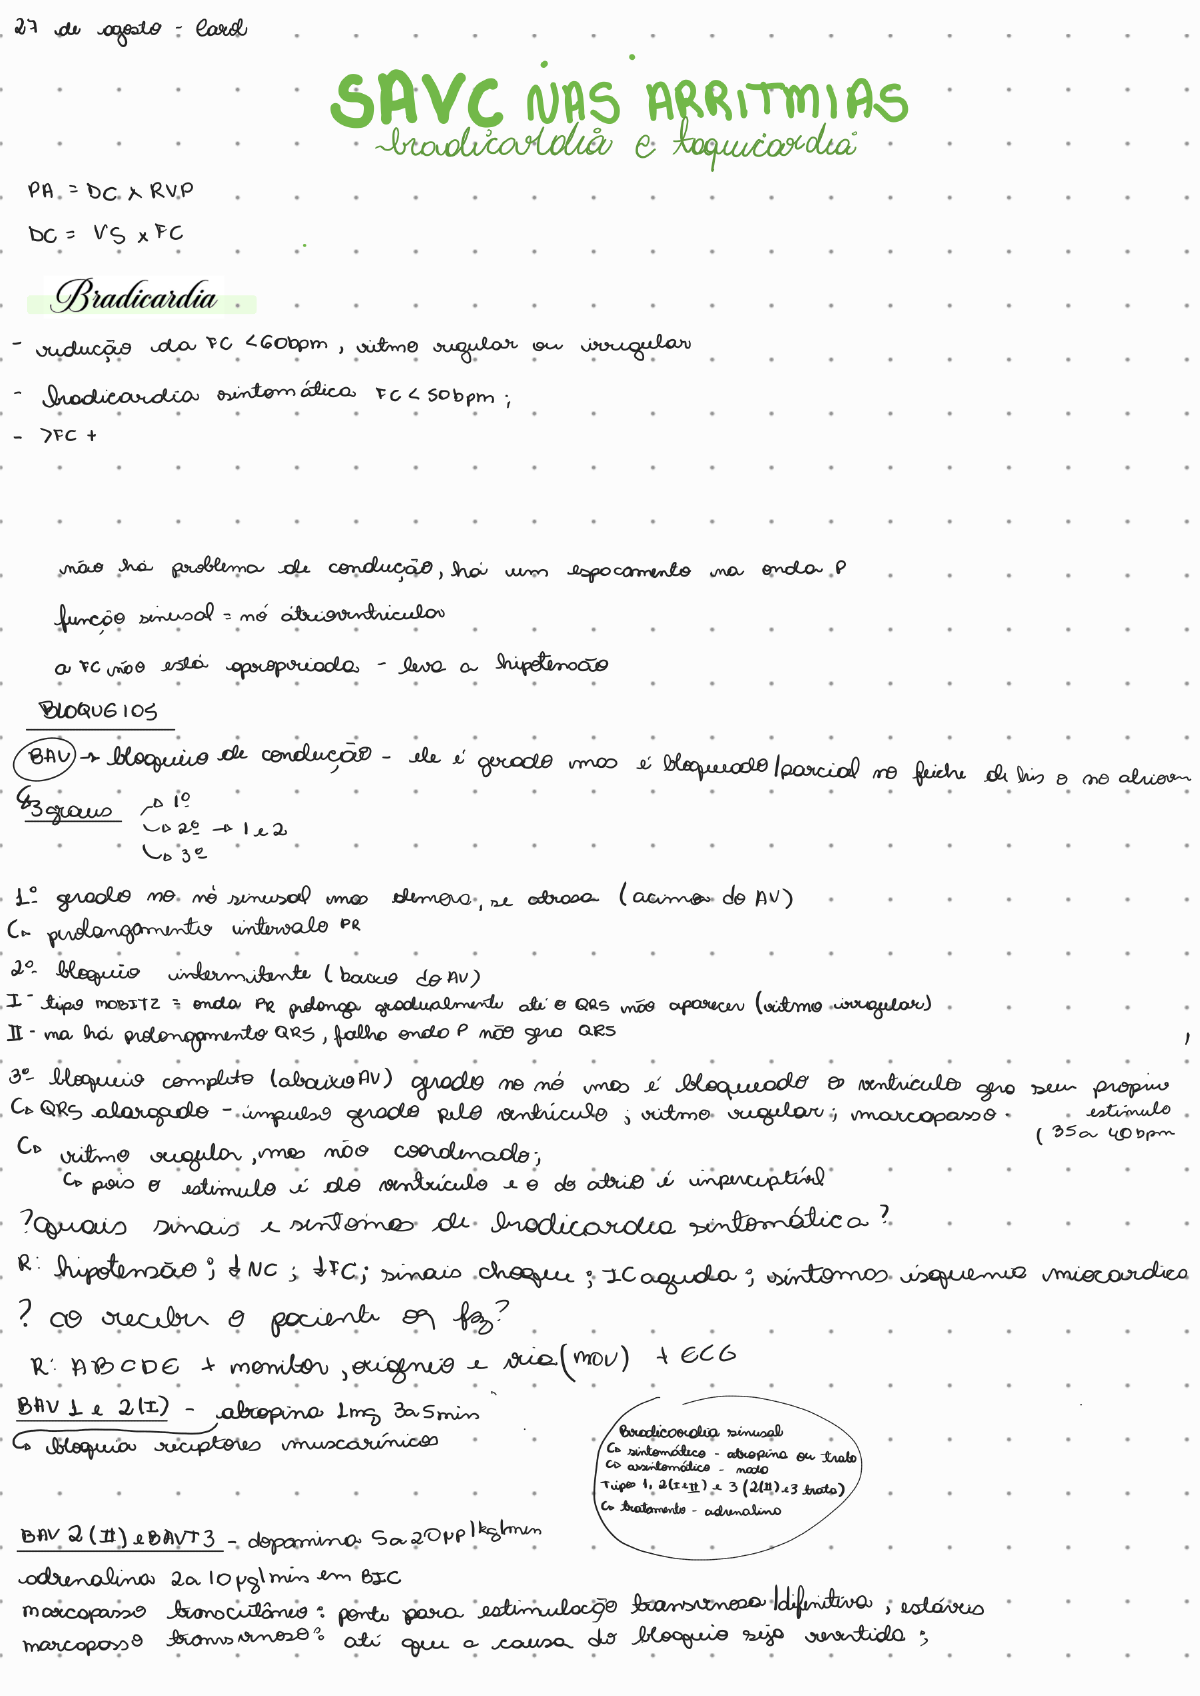 27 de agosto - Carol
SAVC NAS ARRITMIAS
bradicardia e taquicardia
PA = DC x RVP
DC = VS x FC
Bradicardia
- redução da FC <60bpm, ritmo regular ou irregular
- bradicardia sintomática FC < 50bpm;
- >FC +
não há problema de condução, há um espaçamento na onda P
função sinusal = nó átrioventricular
a FC não está apropriada - leva a hipotensão
BLOQUEIOS
BAV → bloqueio de condução - ele é gerado mas é bloqueado/parcial no feiche de his o no atrioven
↳ 3 graus → 1º
↳ 2º → 1 e 2
↳ 3º
1º gerado no nó sinusal mas demora, se atrasa (acima do AV)
↳ prolangamento intervalo PR
2º- bloqueio intermitente (baixo do AV)
I - tipo MOBITZ = onda PR prolonga gradualmente até o QRS não aparecer (ritmo irregular)
II - ma há prolongamento QRS, falha onda P não gera QRS
3º- bloqueio completo (abaixo AV) gerado no nó mas é bloqueado o ventrículo gera seu próprio
estimulo
↳ QRS alargado - impulso gerado pelo ventrículo; ritmo regular; marcapasso.
(35 a 40 bpm
↳ ritmo regular, mas não coordenado;
↳ pois o estimulo é do ventrículo e o do atrio é imperceptível
? quais sinais e sintomas de bradicardia sintomática?
R: hipotensão; ↓NC; ↓FC; sinais choque; IC aguda; sintomas isquemia miocardica
? ao receber o paciente oq faz?
R: ABCDE + monitor, oxigênio e veia (MOV) + ECG
BAV 1 e 2(I) - atropina 1mg 3a5min
↳ bloqueia receptores muscarínicos
Bradicardia sinusal
↳ sintomático - atropina ou trato
↳ assintomático - nada
Tipos 1, 2(I e II) e 3 (2(II) e 3 trata)
↳ tratamento - adrenalina
BAV 2 (II) e BAVT 3 - dopamina 5 a 20 µp/kg/min
adrenalina 2a 10 µg/min em BIC
marcapasso transcutâneo: ponte para estimulação transvenosa/difinitiva, estáveis
marcapasso transvenoso: até que a causa do bloqueio seja revertida;